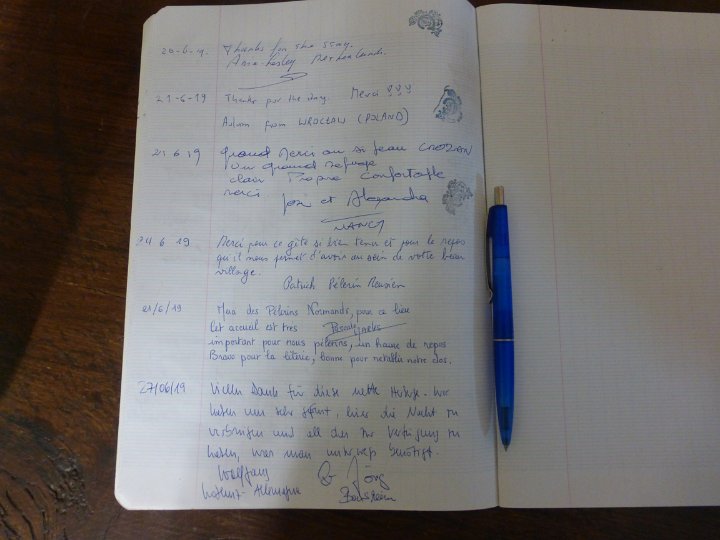 20-6-19 Thanks for the stay.
21-6-19 Thanks for the stay. Merci !!!
from WROCŁAW (POLAND)
Grand Merci au si beau
Un grand refuge
clair Propre Confortable
merci.
et Alexandra
NANCY
24 6 19 Merci pour ce gîte si bien tenu et pour le repos
qu'il nous permet d'avoir au sein de votre beau
village.
Patrick Pélerin
/6/19 des Pélerins Normands, pour ce lieu
Cet accueil est très
important pour nous pélerins, un havre de repos
Bravo pour la literie, bonne pour notre dos.
27/06/19 Vielen Dank für diese nette Hütte. Wir
haben uns sehr gefreut, hier die Nacht zu
verbringen und all das zur Verfügung zu
haben, was man unterwegs benötigt.
Wolfgang & Jörg
Allemagne